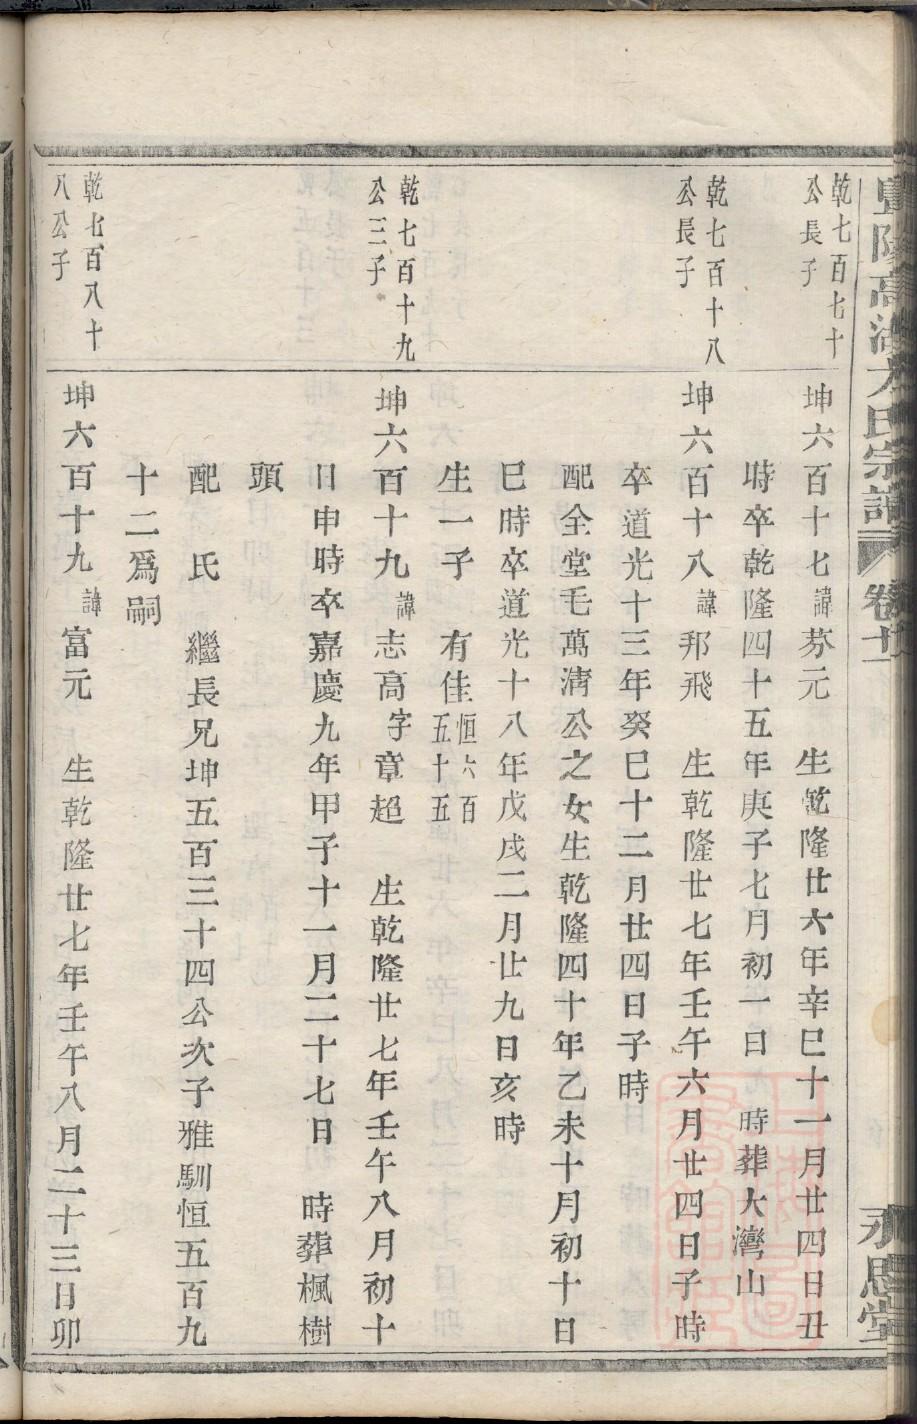 高 方氏宗譜 卷十一 永思堂
乾七百七十
公長子
坤六百十七 諱 芬元 生乾隆廿六年辛巳十一月廿四日丑
時卒乾隆四十五年庚子七月初一日 時葬大灣山
乾七百十八
公長子
坤六百十八 諱 邦飛 生乾隆廿七年壬午六月廿四日子時
卒道光十三年癸巳十二月廿四日子時
配全堂毛萬清公之女生乾隆四十年乙未十月初十日
巳時卒道光十八年戊戌二月廿九日亥時
生一子 有佳 恒六百
五十五
乾七百十九
公三子
坤六百十九 諱 志高 字 章超 生乾隆廿七年壬午八月初十
日申時卒嘉慶九年甲子十一月二十七日 時葬楓樹
頭
配 氏 繼長兄坤五百三十四公次子雅馴恒五百九
十二爲嗣
乾七百八十
八公子
坤六百十九 諱 富元 生乾隆廿七年壬午八月二十三日卯